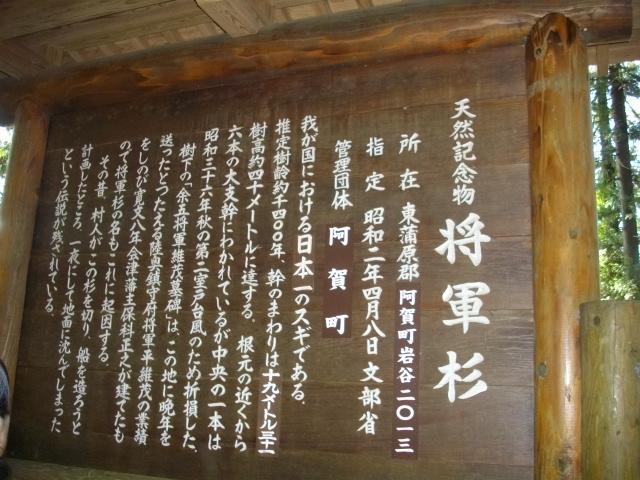 天然記念物
将軍杉
所在 東蒲原郡 阿賀町岩谷二〇一三
指定 昭和二年四月八日 文部省
管理団体 阿賀町
我が国における日本一のスギである。
推定樹齢約千四〇〇年、幹のまわりは十九メートル三十一
樹高約四十メートルに達する。根元の近くから
六本の大支幹にわかれているが中央の一本は
昭和三十六年秋の第二室戸台風のため折損した。
樹下の「余五将軍維茂墓碑」は、この地に晩年を
送ったとつたえる陸奥鎮守府将軍平維茂の業績
をしのび寛文八年会津藩主保科正之が建てたも
ので将軍杉の名もこれに起因する。
その昔、村人がこの杉を切り、船を造ろうと
計画したところ、一夜にして地面に沈んでしまった
という伝説が残されている。